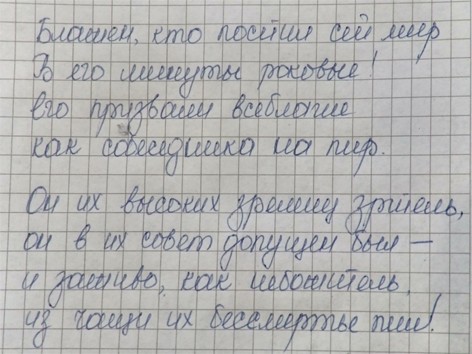 Блажен, кто посетил сей мир
В его минуты роковые!
Его призвали всеблагие
как собеседника на пир.
Он их высоких зрелищ зритель,
он в их совет допущен был —
и заживо, как небожитель,
из чаши их бессмертье пил!